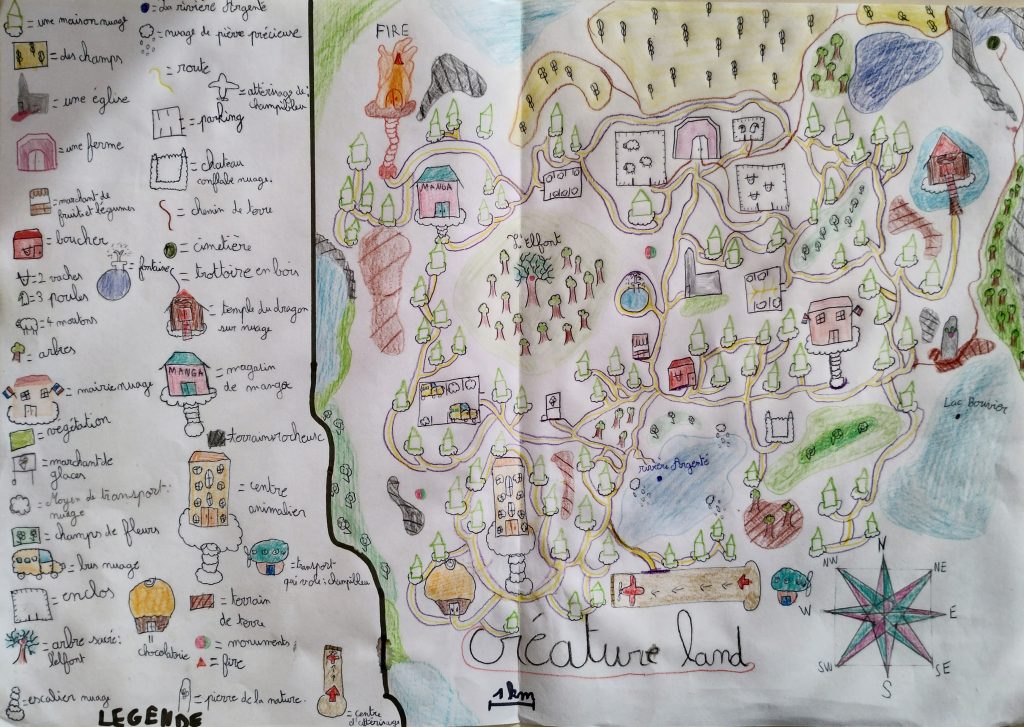 = une maison nuage
= des champs
= une église
= une ferme
= marchant de
fruits et légumes
= boucher
= 2 vaches
= 3 poules
= 4 moutons
= arbres
= mairie nuage
= vegétation
= marchant de
glaces
= Moyen de transport:
nuage
= champs de fleurs
= bus nuage
= enclos
= arbre sacré:
l'elfont
= escalier nuage
= La rivière Argenté
= nuage de pierre précieuse
= route
= attérisage de
champibleu
= parking
= chateau
conflable nuage.
= chemin de terre
= cimetière
fontaine
= trottoire en bois
= temple du dragon
sur nuage
MANGA
= magasin
de manga
= terrain rocheux
= centre
animalier
= transport
qui vole: champibleu
= chocolatrie
= terrain
de terre
= monuments
= fire
= pierre de la nature.
= centre
d'attérisage
LEGENDE
FIRE
MANGA
L'Elfont
rivière Argenté
Lac Bouvier
Créature land
1 km
N
NE
E
SE
S
SW
W
NW